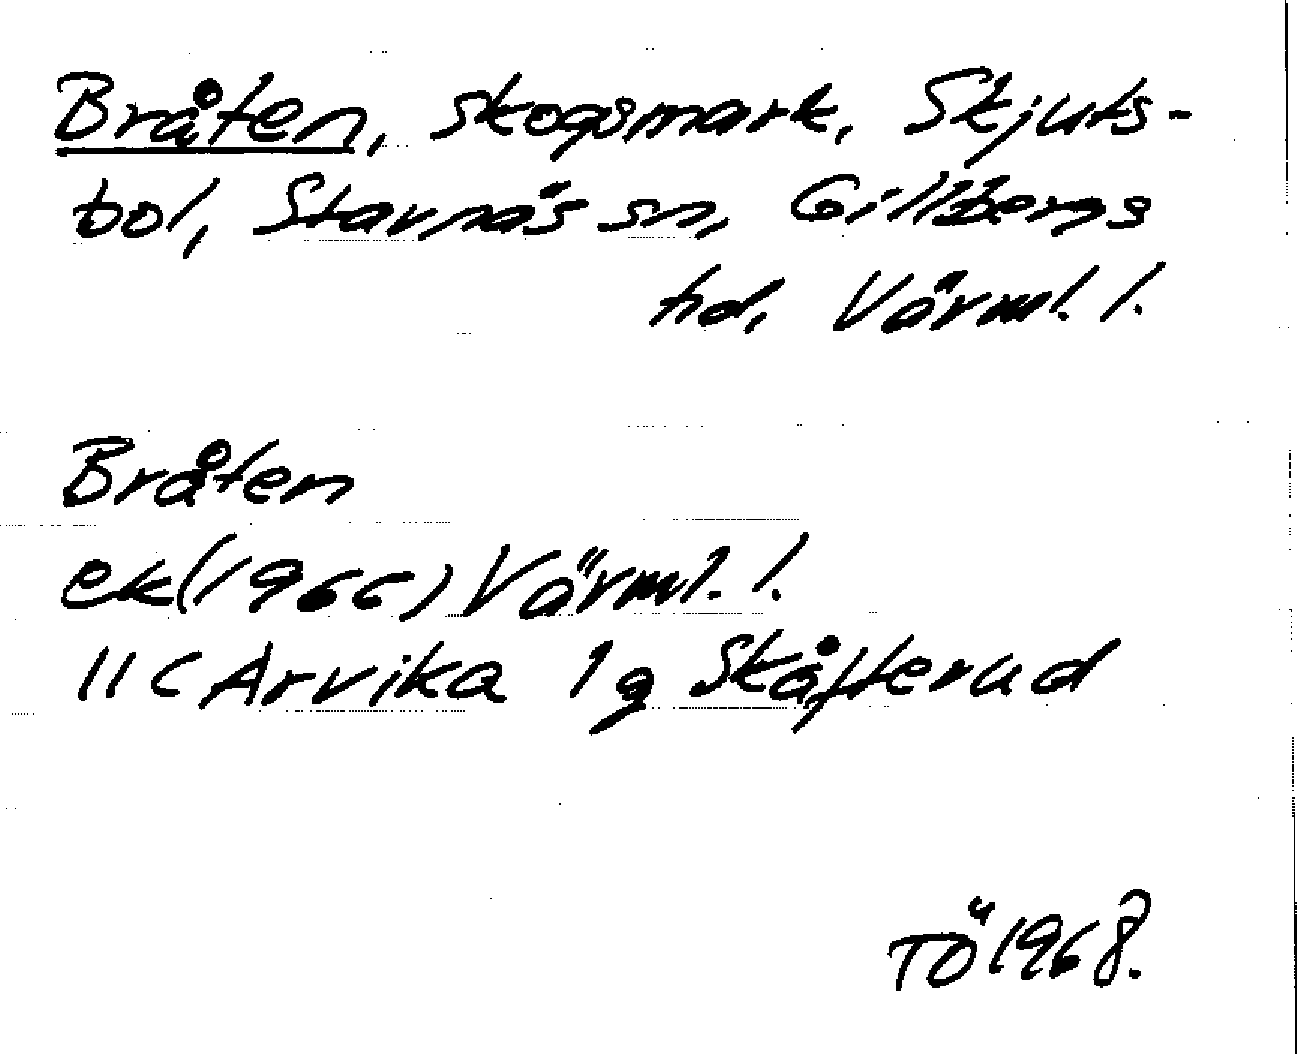 Bråten, skogsmark, Skjuts-
bol, Stavnäs sn, Gillbergs
hd, Värml. l.
Bråten
ek (1966) Värml. l.
11C Arvika 1g Skåfterud
TÖ 1968.